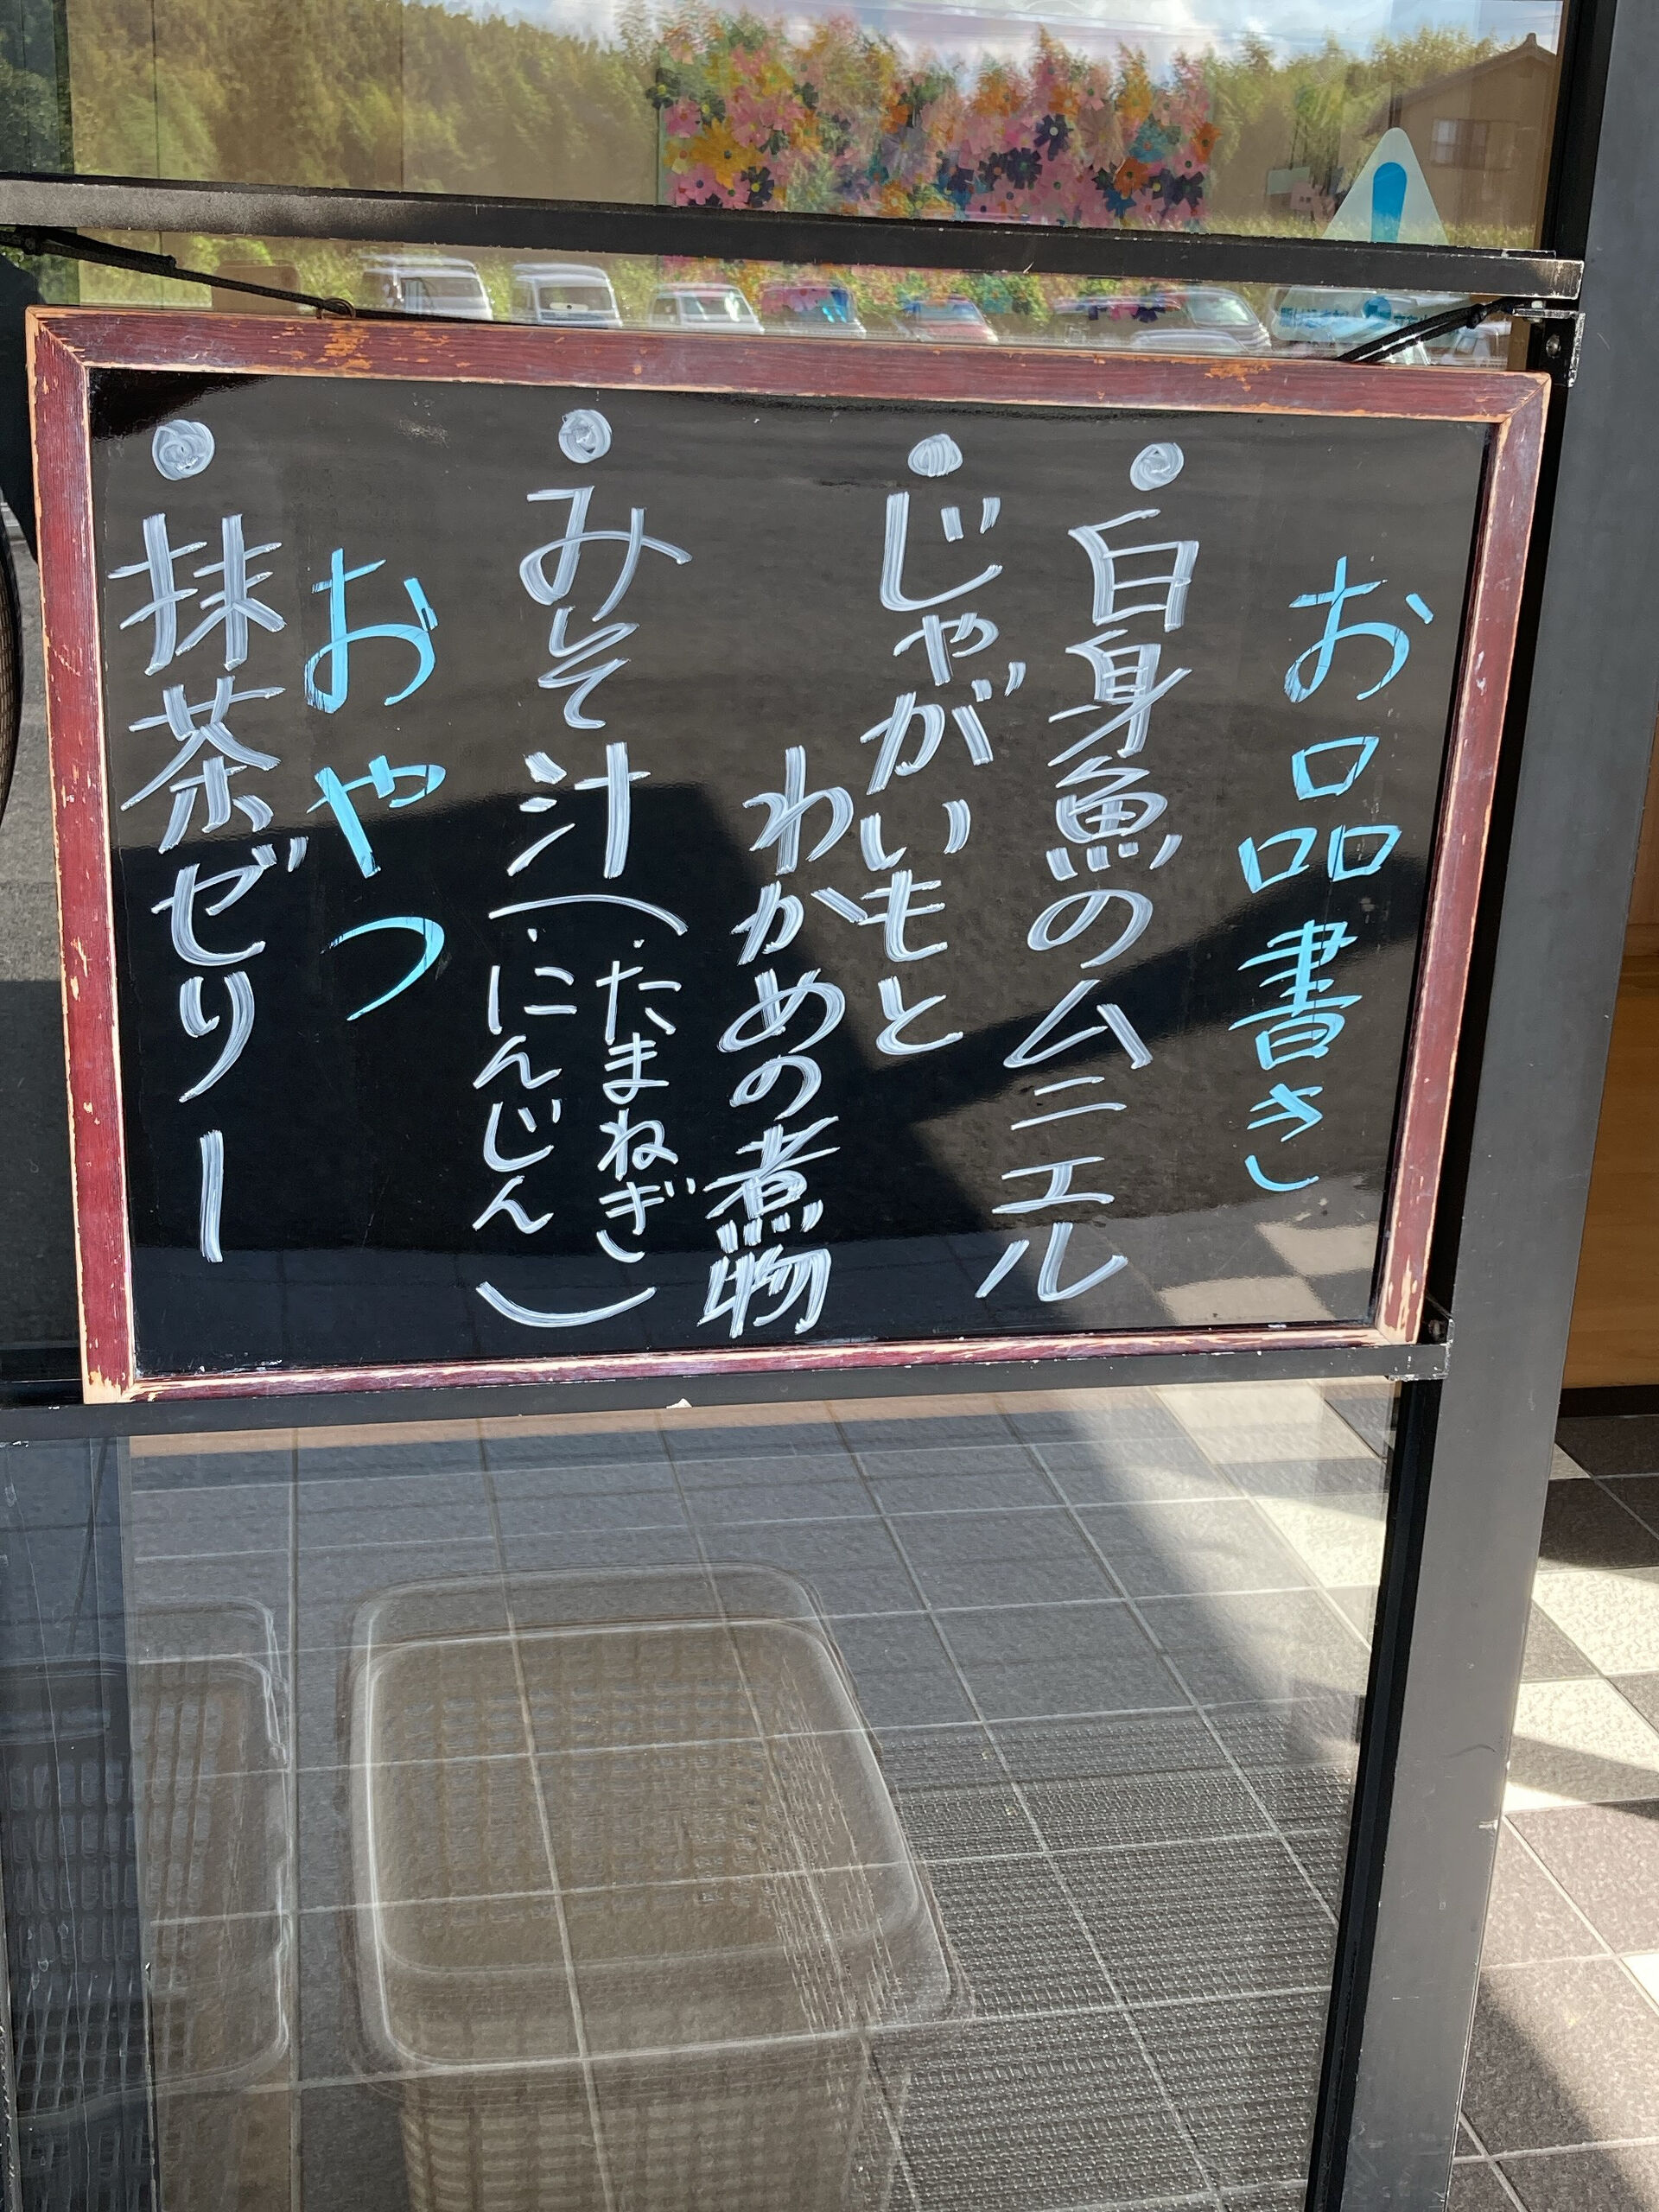 お品書き
●白身魚のムニエル
●じゃがいもと
わかめの煮物
●みそ汁(・たまねぎ
・にんじん)
おやつ
●抹茶ゼリー